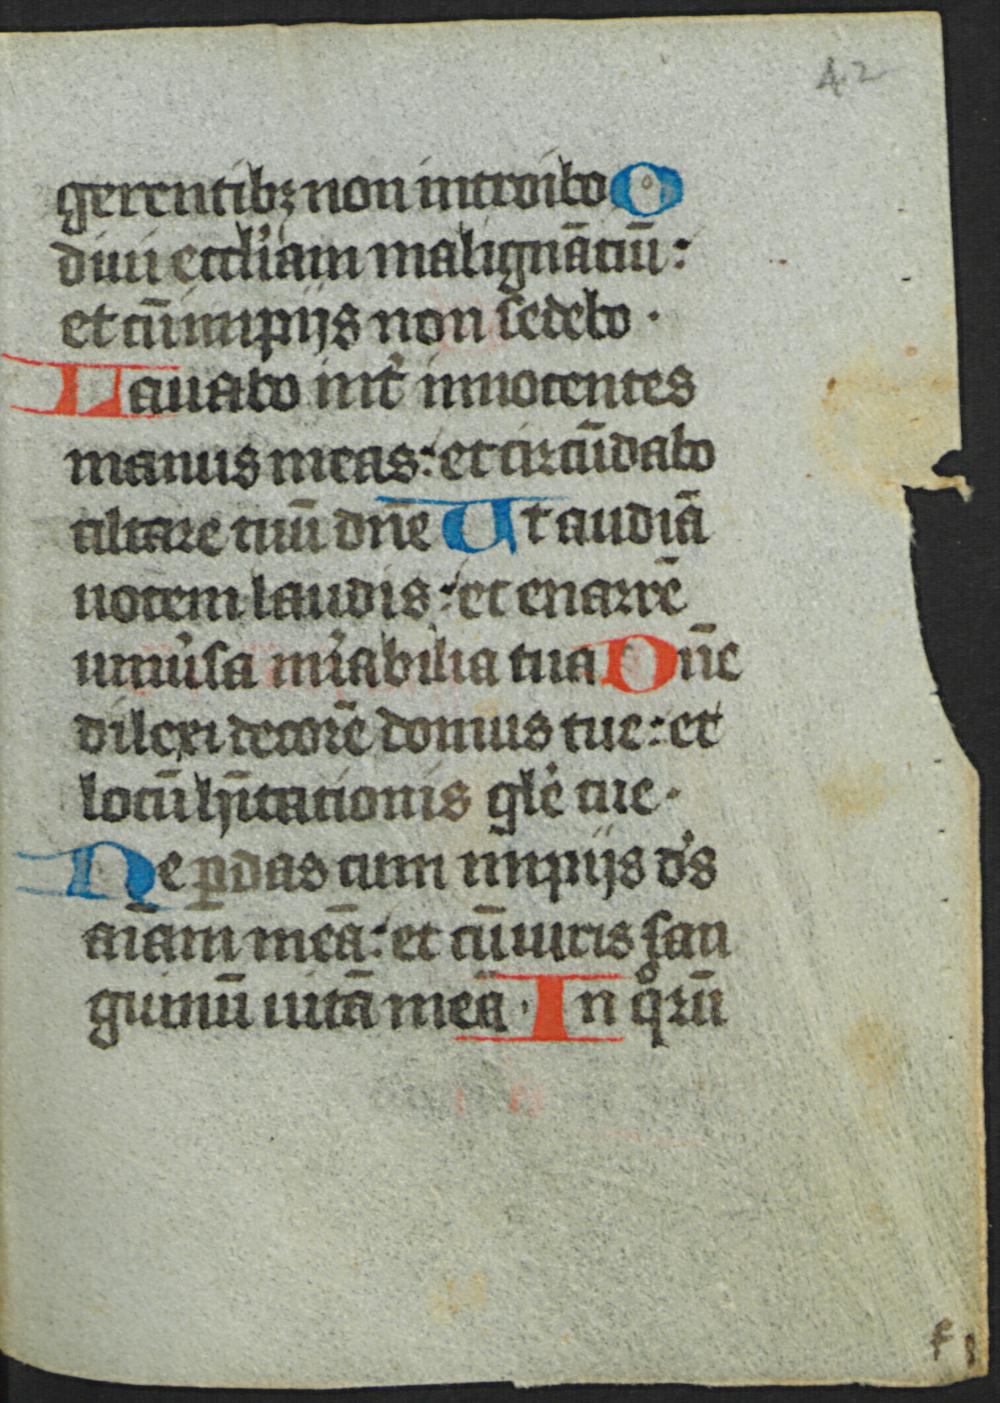 42
gerentibꝫ non introibo O
diui eccl̓iam malignātiū :
et cū impijs non sedebo ·
Lauabo int̓ innocentes
manus meas : et circūdabo
altare tuū dn̄e Ut audiā
uocem laudis : et enarrē
uniu̓sa mi̓abilia tua Dn̄e
dilexi decorē domus tue : et
locū hītationis gl̓e tue ·
Ne ꝑdas cum impijs d̓s
aīam meā : et cū uiris san
guinū uitā meā · In qͦrū
f